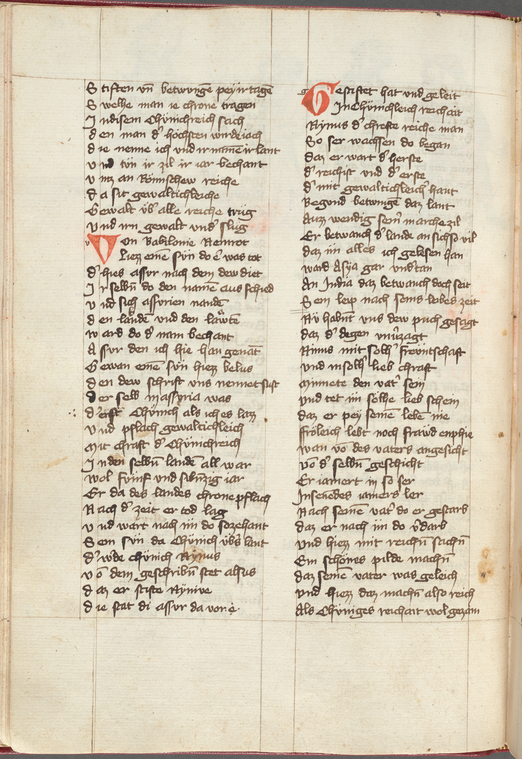 Stiften vn̄ betwungē peyir tagē
Swelhe man ie chrone tragen
Indisem Chünichreich sach
den man d' höchsten wirde iach
die nenne ich und ir namē ir lant
vnd tün ir zil ir iar bechant
vntz an Römischew reiche
da sit gewaltichleiche
Gewalt üb' alle reiche trüg
vnd im gewalt und slug
Von Babilonie Nemrot
Liezz eine sün do e' was tot
d' hies assur nach dem dew diet
Ir selbn̄ do den namē aus schied
vnd sich assyrien nande
den lauden und den lawtē
ward do d' nam bechant
Asyr den ich hie han genāt
Gewan eine sün hiez belus
den dew schrift vns nennet sust
der selb in assyria was
d' erst Chünich als ich es laz
vnd pflach gewaltichleich
Mit chraft d' Chünichreich
Inden selbn̄ landē all war
wol fvnf und sibn̄zig iar
Er da des landes chrone pflach
Nach d' zeit er tod lag
vnd wart nach im do sozehant
Sein sün da Chünich üb's lant
d' w'de chünich Nynus
vō dem geschribn̄ stet alsus
daz er stifte Nynive
die stat di assur da vor e
Gestiftet hat und geleit
In Chünichleich reichait
Nynus d' chrefte reiche man
So ser wachsen do began
daz er wart d' herste
d' reichist und d' erste
d' mit gewaltichleich hant
Begond betwingē daz lant
Auzz wendig sein' marche zil
Er betwanch d' lande an sich so vil
daz im alles ich gelesen han
ward Asya gar und'tan
An India daz betwanch doch seit
Sein leip nach seins lebes zeit
Nv habnt vns dew puch gesagt
daz d' degen unv'zagt
Ninus mit solh' frewntschaft
und in solh' lieb chraft
minnete den vat' sein
und tet im solhe lieb schein
daz er pey seine lebe nie
frölich lebt noch frawd enphie
wan vō des vaters angesicht
vō d' selbn̄ geschicht
Er iamert in so ser
In senedes iamers ler
Nach seine vat' do er gestarb
daz er nach im do v'darb
und hiezz mit reichn̄ sachn̄
Ein schönes pilde machn̄
daz seine vater was geleich
und hiezz daz machn̄ also reich
Als Chüniges reichait wol gezam